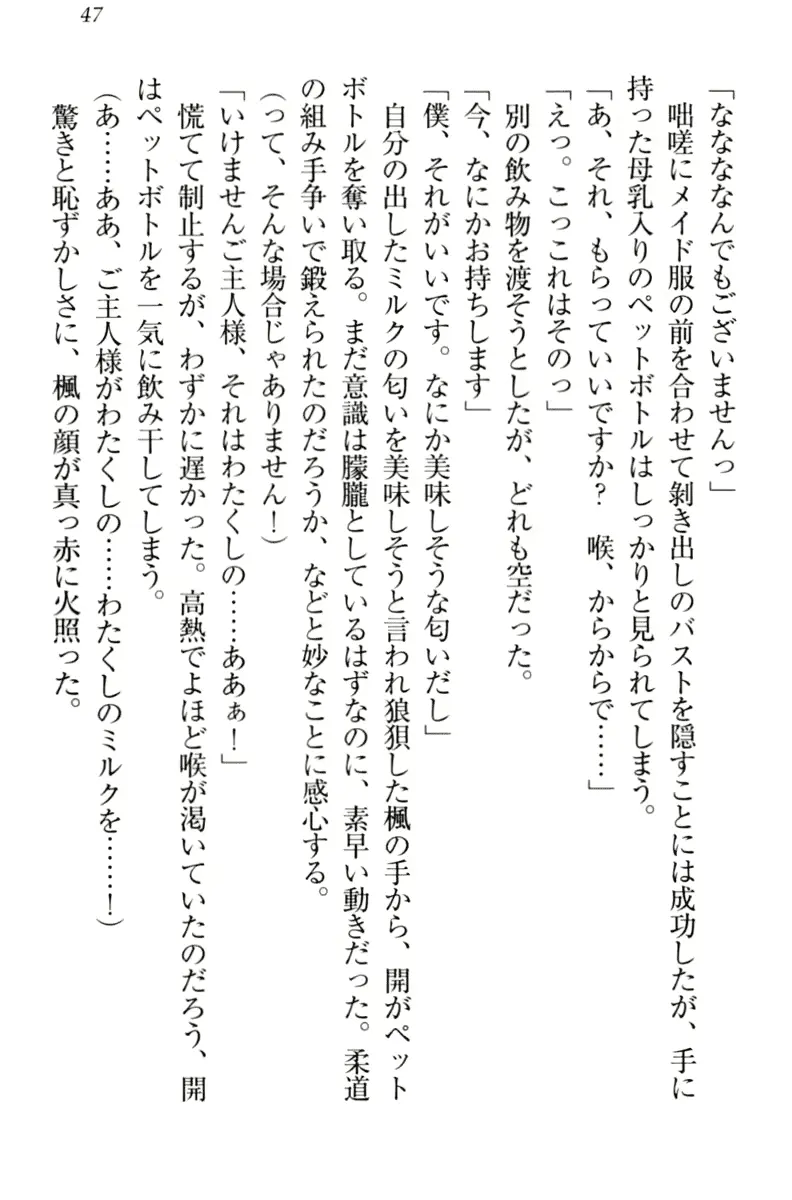 47
「なななななんでもございませんっ」
咄嗟にメイド服の前を合わせて剝き出しのバストを隠すことには成功したが、手に
持った母乳入りのペットボトルはしっかりと見られてしまう。
「あ、それ、もらっていいですか？　喉、からからで……」
「えっ。こっこれはそのっ」
別の飲み物を渡そうとしたが、どれも空だった。
「今、なにかお持ちします」
「僕、それがいいです。なにか美味しそうな匂いだし」
自分の出したミルクの匂いを美味しそうと言われ狼狽した楓の手から、開がペット
ボトルを奪い取る。まだ意識は朦朧としているはずなのに、素早い動きだった。柔道
の組み手争いで鍛えられたのだろうか、などと妙なことに感心する。
（って、そんな場合じゃありません！）
「いけませんご主人様、それはわたくしの……ああぁ！」
慌てて制止するが、わずかに遅かった。高熱でよほど喉が渇いていたのだろう、開
はペットボトルを一気に飲み干してしまう。
（あ……ああ、ご主人様がわたくしの……わたくしのミルクを……！）
驚きと恥ずかしさに、楓の顔が真っ赤に火照った。